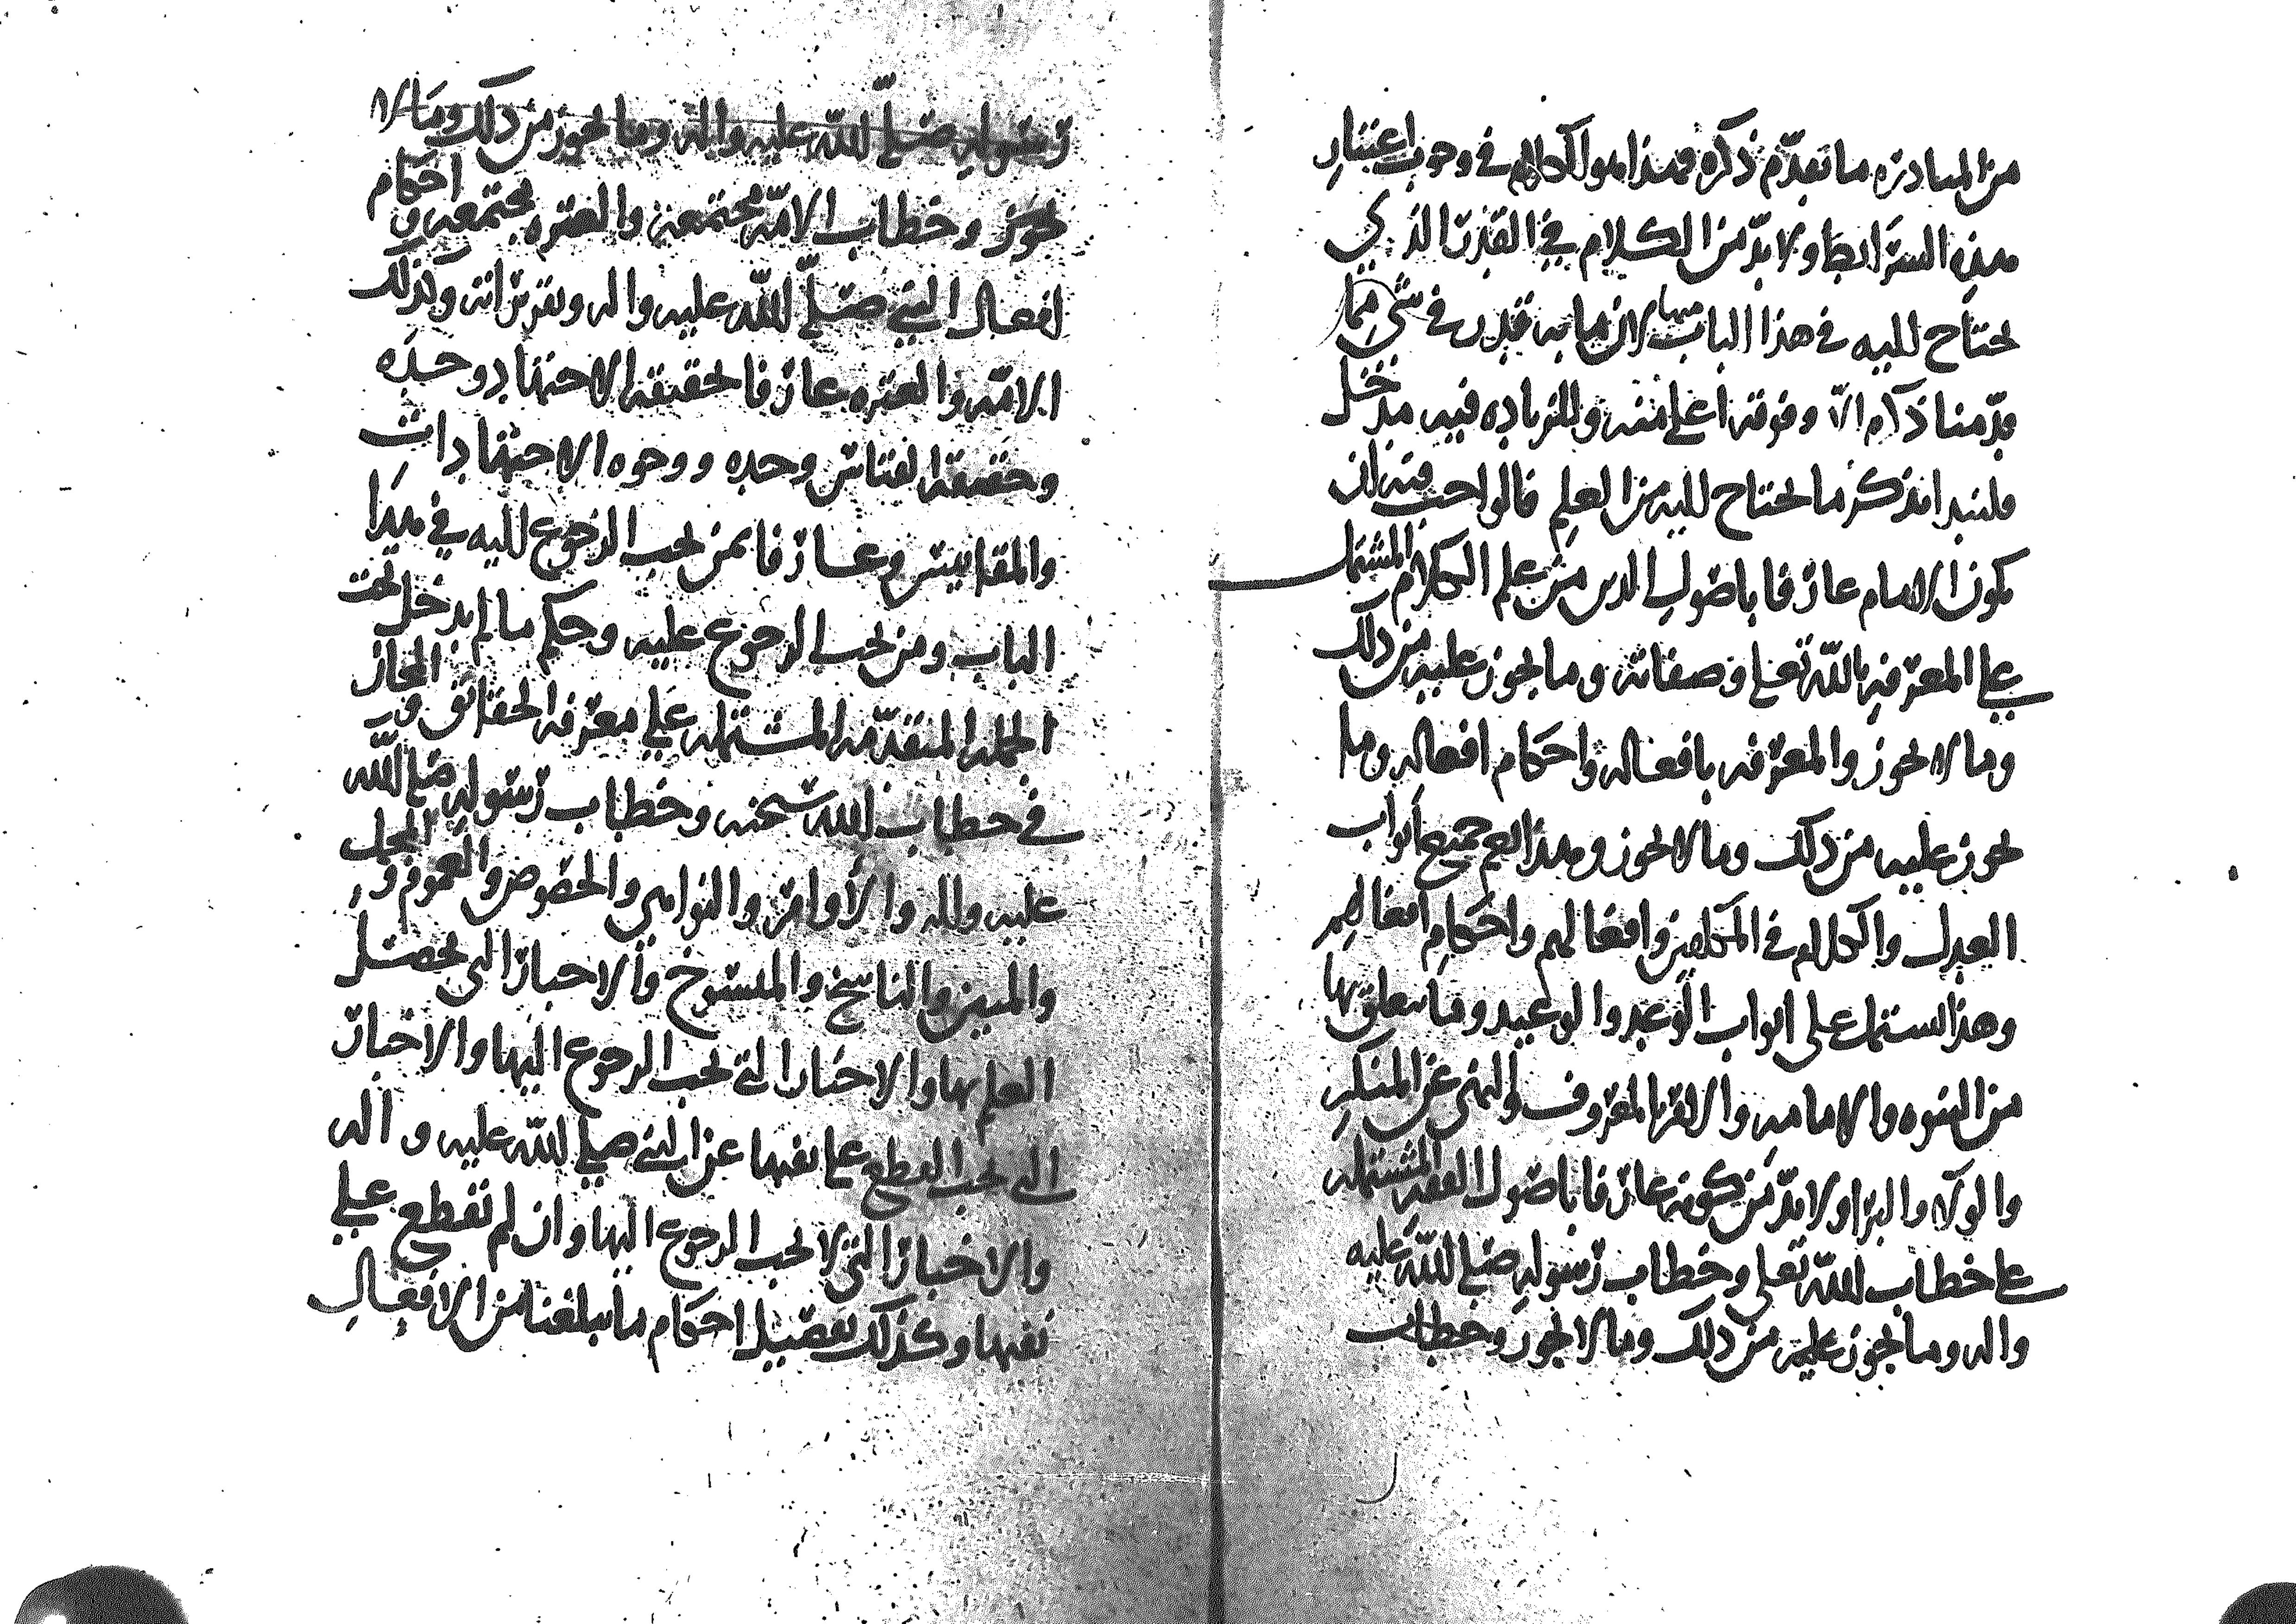 من المبادره ما تقدّم ذكره فهذا هو الكلام في وجوب اعتبار
هذه الشرايط ولا بدّ من الكلام في القدر الذي
يحتاج اليه في هذا الباب منها لان ما به قدر في شي مما
قدّمنا ذكره الا وفوقه اعلى منه وللزياده فيه مدخل
فلنبدا بذكر ما يحتاج اليه من العلم فالواجب فيه ان
يكون الامام عارفا باصول الدين من علم الكلام المشتمل
على المعرفه بالله تعلى وصفاته وما يجوز عليه من ذلك
وما لا يجوز والمعرفه بافعاله واحكام افعاله وما
يجوز عليه من ذلك وما لا يجوز وهذا يعم جميع ابواب
العدل والكلام في المكلفين وافعالهم واحكام افعالهم
وهذا يشتمل على ابواب الوعد والوعيد وما يتعلق بها
من النبوه والامامه والامر بالمعروف والنهي عن المنكر
والولاء والبرا ولا بدّ من كونه عارفا باصول الفقه المشتمله
على خطاب الله تعلى وخطاب رسوله صلى الله عليه
واله وما يجوز عليه من ذلك وما لا يجوز وخطاب
رسوله صلى الله عليه واله وما يجوز من ذلك وما لا
يجوز وخطاب الامّه مجتمعة والعتره مجتمعه واحكام
افعال النبي صلّى الله عليه واله وتقريراته وكذلك
الامّه والعتره عارفا بحقيقة الاجتهاد وحدّه
وحقيقة القياس وحده ووجوه الاجتهادات
والمقاييس وعارفا بمن يجب الرجوع اليه في هذا
الباب ومن يجب الرجوع عليه وحكم ما لم يدخل تحت
الجمله المتقدّمه المشتمله على معرفه الحقائق والمجاز
في خطاب الله سبحنه وخطاب رسوله صلى الله
عليه واله والاوامر والنواهي والخصوص والعموم والمجمل
والمبين والناسخ والمنسوخ والاخبار التي يحصل
العلم بها والاخبار التي يجب الرجوع اليها والاخبار
التي يجب القطع على نفيها عن النبي صلى الله عليه واله
والاخبار التي لا يجب الرجوع اليها وان لم نقطع على
نفيها وكذلك تفصيل احكام ما يبلغنا من الافعال